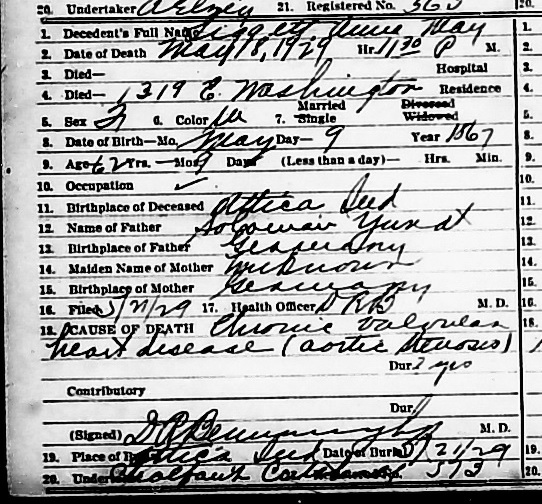 20. Undertaker 21. Registered No. 363
1. Decedent's Full Name Liggett Anna May
2. Date of Death May 18, 1929 Hr. 11 30 P M.
3. Died— Hospital
4. Died— 1319 E. Washington Residence
5. Sex F 6. Color W 7. Married Single Divorced Widowed
8. Date of Birth—Mo. May Day— 9 Year 1867
9. Age 62 Yrs. — Mos. 9 Days (Less than a day)— Hrs. Min.
10. Occupation ✓
11. Birthplace of Deceased Attica Ind
12. Name of Father Solomon Yundt
13. Birthplace of Father Germany
14. Maiden Name of Mother Unknown
15. Birthplace of Mother Germany
16. Filed 5/21/29 17. Health Officer D R B M. D.
18. CAUSE OF DEATH Chronic valvular
heart disease (aortic stenosis)
Dur. 2 yrs
Contributory
Dur.
(Signed) M. D.
19. Place of Attica Ind Date of Burial 5/21/29
20. 373